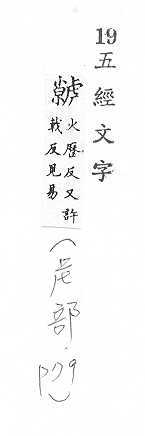 19 五經文字
虩 火歷反又許
戟反見易
(虍部．P79)